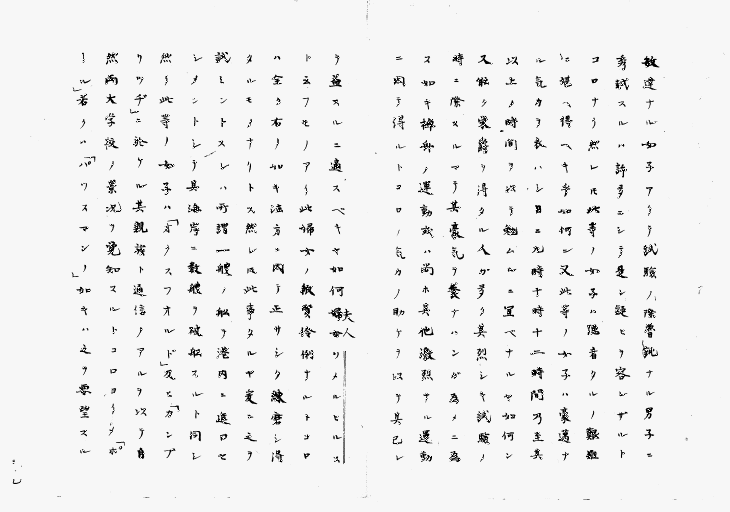 敏達ナル女子アリテ試験ノ際魯鈍ナル男子ニ
考試スルハ許多ニシテ是レ疑ヒヲ容レザルト
コロナリ然レ𪜈此等ノ女子ハ聴音タルノ艱難
ニ堪ヘ得ヘキ乎如何ン又此等ノ女子ハ豪邁ナ
ル気力ヲ衣ハシ日ニ九時十時十二時間乃至其
以上ノ時間ヲ以テ勉ムルニ宜ベナルヤ如何ン
又能ク褒爵ヲ得タル人ガ多ク其烈シキ試験ノ
時ニ際スルマテ其豪気ヲ養ナハンガ為メニ為
ス如キ操舟ノ運動或ハ尚ホ其他激烈ナル運動
ニ因テ得ルトコロノ気力ノ助ケヲ以テ其己レ
ヲ益スルニ適スベキヤ如何婦女リメルヒルス
夫人
ト云フモノアリ此婦女ノ敏賢怜悧ナルトコロ
ハ全ク右ノ如キ法方ニ因テ正サシク練磨シ得
タルモノナリトス然レ𪜈此事タルヤ変ニ之ヲ
試ミントスレハ所謂一艘ノ船ヲ港内ニ進ロセ
シメントシテ其海岸ニ数艘ヲ破船スルト同シ
然リ此等ノ女子ハ「オクスフオルド」及ヒ「カンブ
リツヂ」ニ於ケル其親族ト通信ノアルヲ以テ自
然両大学校ノ景況ヲ覚知スルトコロヨリシ「ポ
ール」若クハ「パツスマン」ノ如キハ之ヲ要望スル